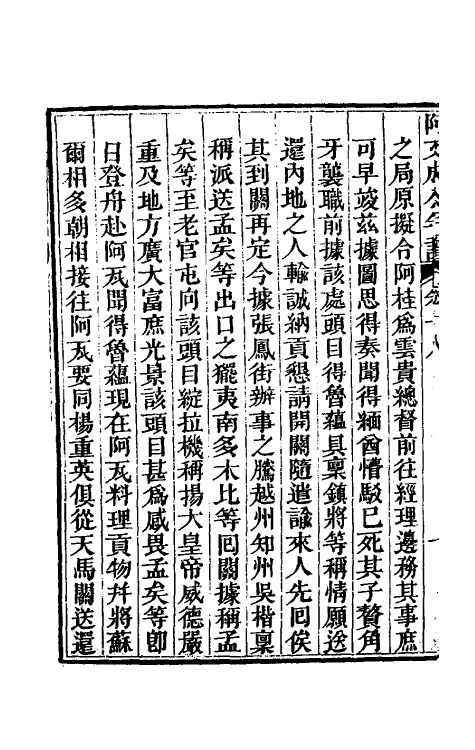 阿文成公年譜 卷十八
之局原擬令阿桂爲雲貴總督前往經理邊務其事庶
可早竣茲據圖思得奏聞得緬酋懵駁已死其子贅角
牙襲職前據該處頭目得魯蘊具稟鎮將等稱情願送
還內地之人輸誠納貢懇請開關隨遣諭來人先囘俟
其到關再定今據張鳳街辦事之騰越州知州吳楷稟
稱派送孟矣等出口之擺夷南多木比等囘關據稱孟
矣等至老官屯向該頭目綻拉機稱揚大皇帝威德嚴
重及地方廣大富庶光景該頭目甚爲感畏孟矣等卽
日登舟赴阿瓦聞得魯蘊現在阿瓦料理貢物幷將蘇
爾相多朝相接往阿瓦要同楊重英俱從天馬關送還